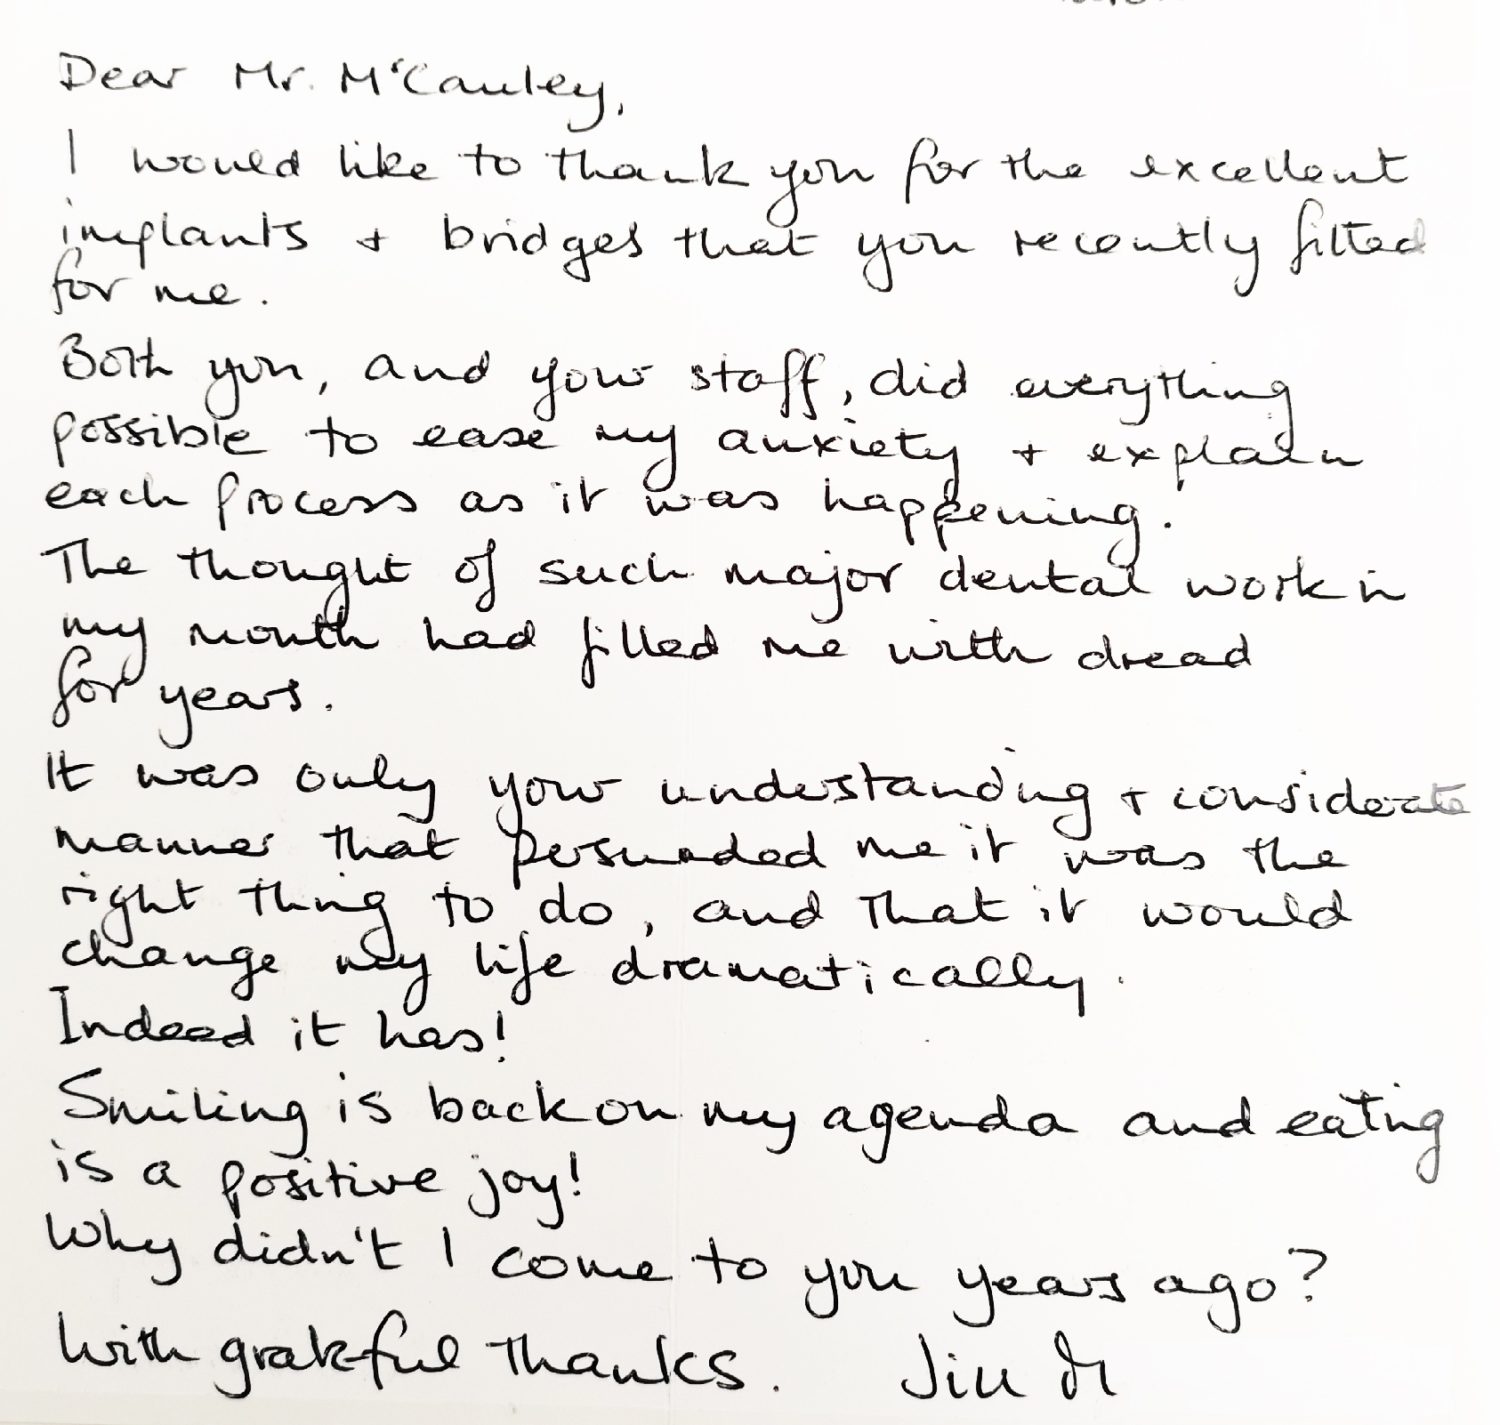 Dear Mr. M'Cauley,
I would like to thank you for the excellent
implants + bridges that you recently fitted
for me.
Both you, and your staff, did everything
possible to ease my anxiety + explain
each process as it was happening.
The thought of such major dental work in
my mouth had filled me with dread
for years.
It was only your understanding + considerate
manner that persuaded me it was the
right thing to do, and that it would
change my life dramatically.
Indeed it has!
Smiling is back on my agenda and eating
is a positive joy!
Why didn't I come to you years ago?
With grateful thanks. Jill M